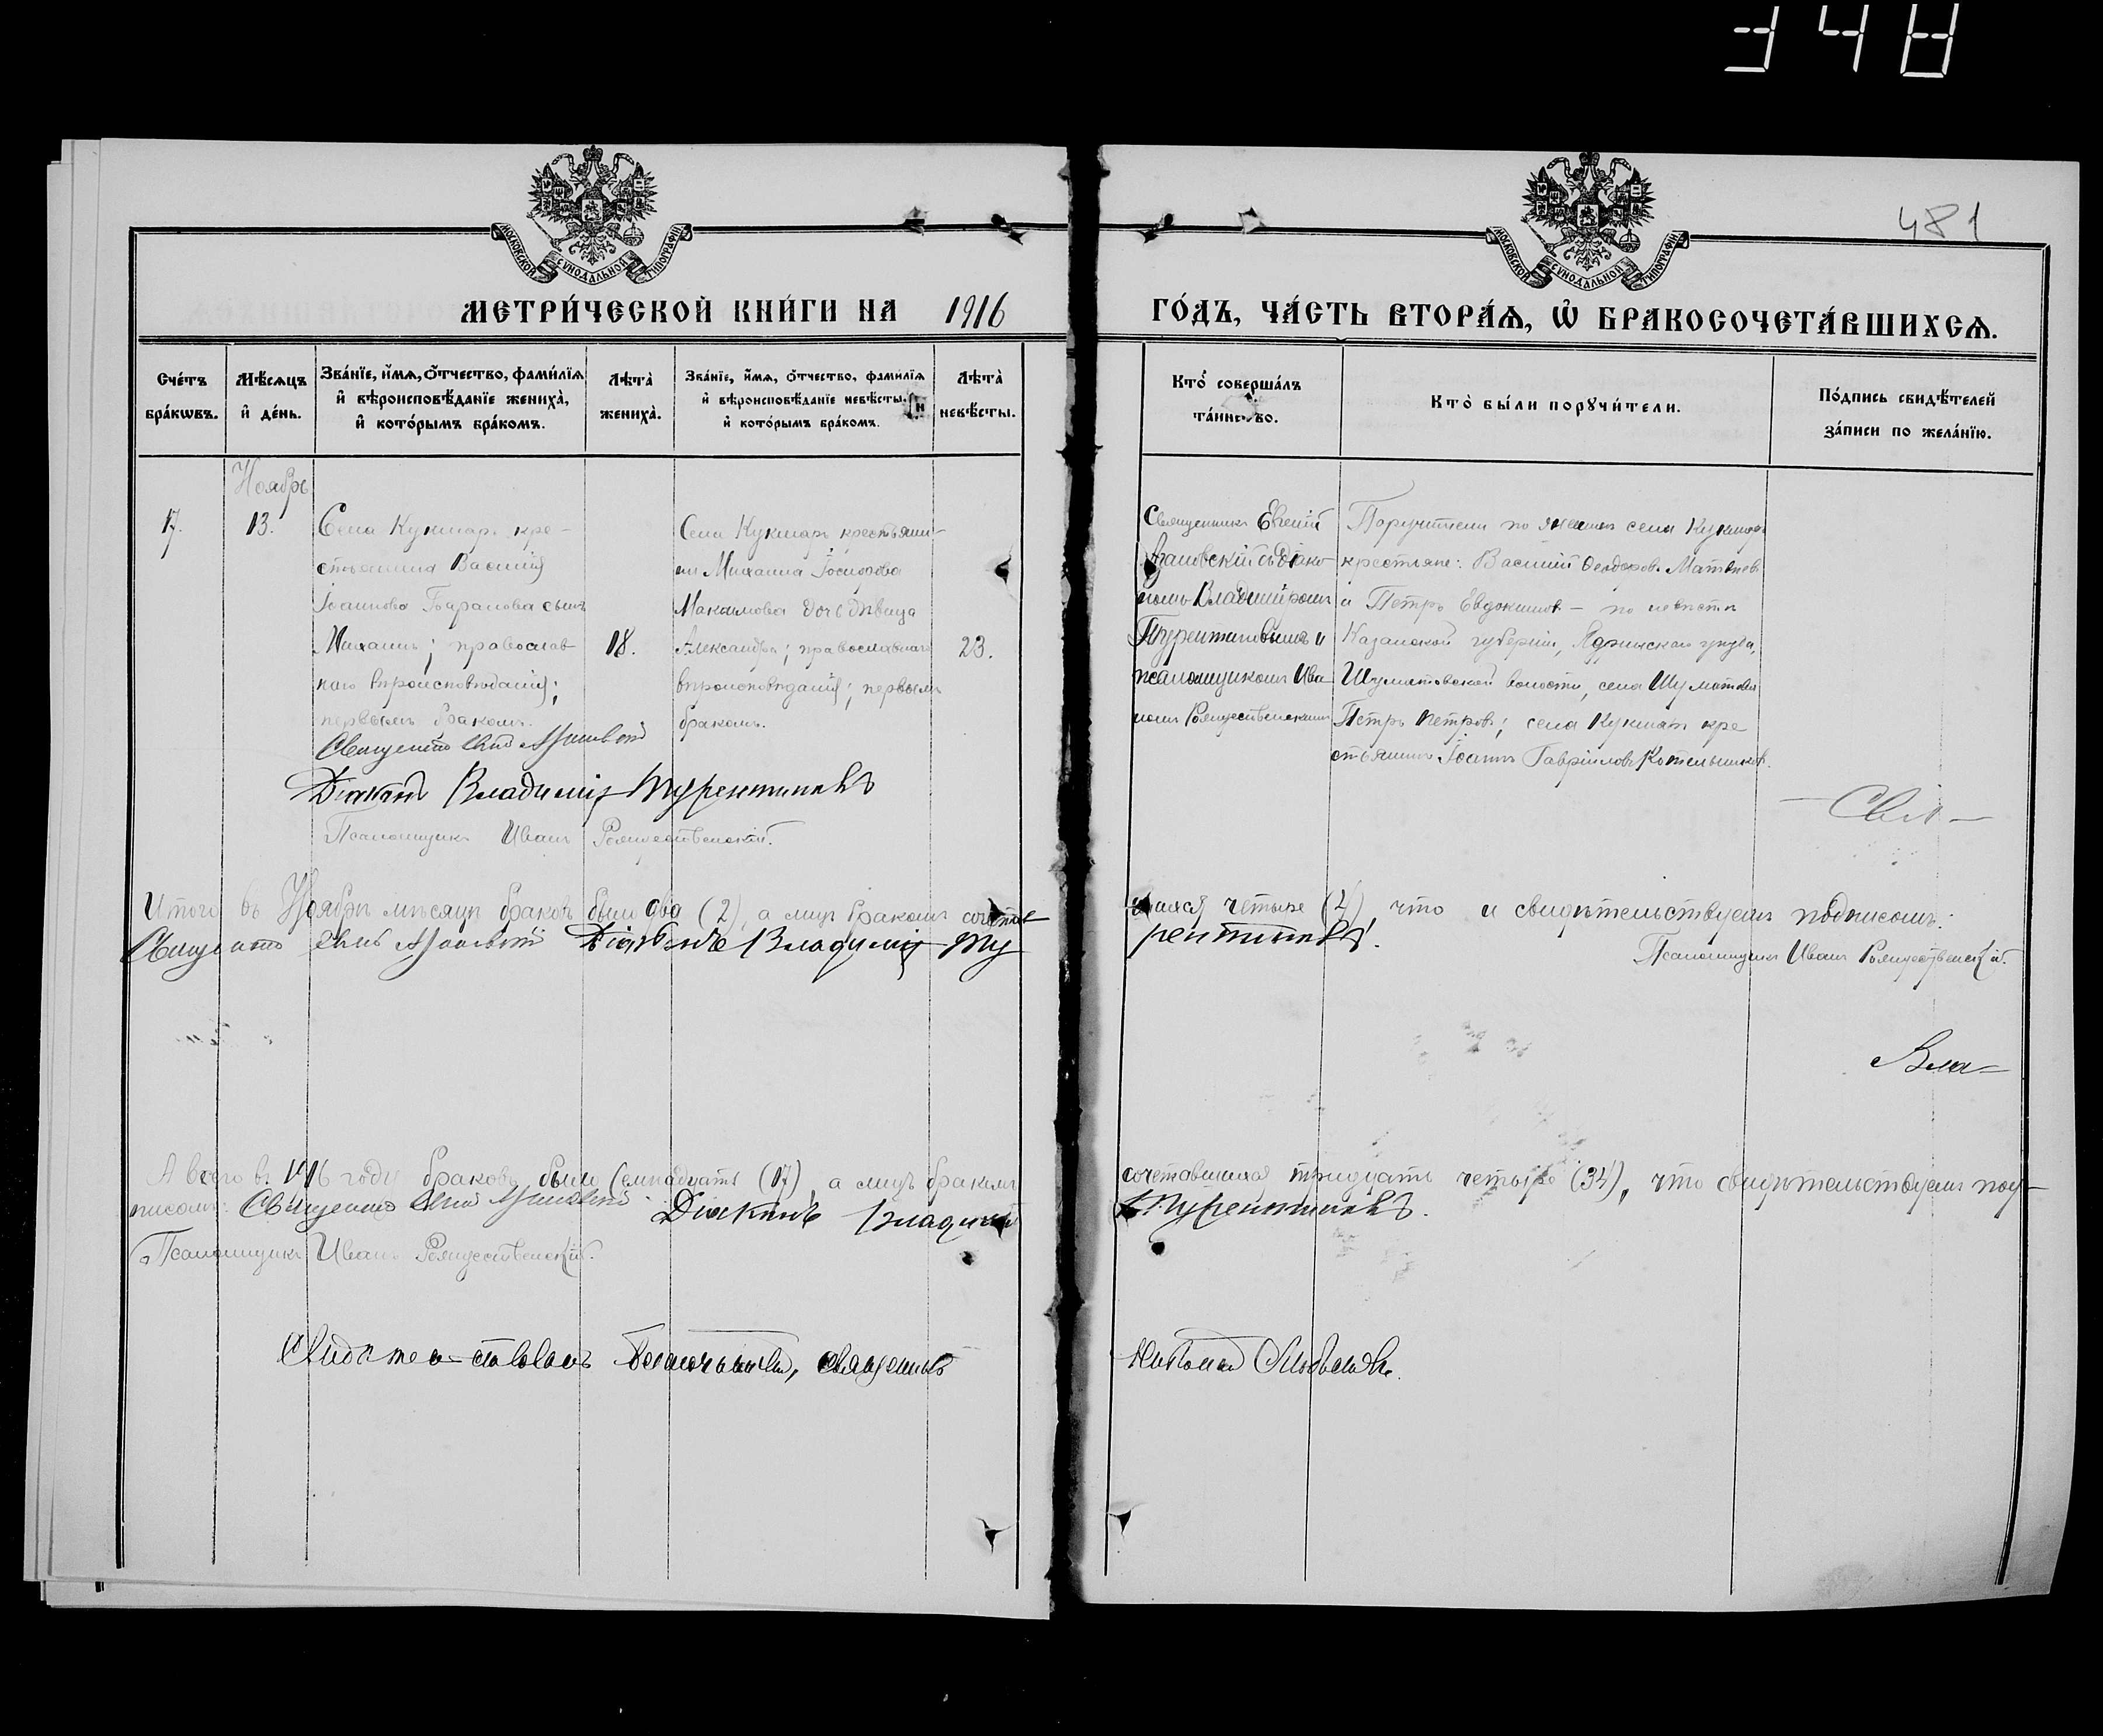 348
481
МОСКОВСКОЙ СѴНОДАЛЬНОЙ ТИПОГРАФІИ
МОСКОВСКОЙ СѴНОДАЛЬНОЙ ТИПОГРАФІИ
МЕТРИ́ЧЕСКОЙ КНИ́ГИ НА 1916 ГО́ДЪ, ЧА́СТЬ ВТОРА́Ѧ, Ѽ БРАКОСОЧЕТА́ВШИХСѦ.
Сче́тъ бра́кωвъ.
Мѣ́сѧцъ и҆ де́нь.
Зва́нїе, и҆́мѧ, ѻ҆́тчество, фами́лїѧ
и҆ вѣроисповѣ́данїе жениха̀,
и҆ кото́рымъ бра́комъ.
Лѣ́та̀ жениха̀.
Зва́нїе, и҆́мѧ, ѻ҆́тчество, фами́лїѧ
и҆ вѣроисповѣ́данїе невѣ́сты,
и҆ кото́рымъ бра́комъ.
Лѣ́та̀ невѣ́сты.
Кто̀ соверша́лъ
та́инство.
Кто̀ бы́ли порꙋчи́тели.
По́дпись свидѣ́телей
за́писи по жела́нїю.
Ноябрь
17.
13.
Села Кукшаръ кре-
стьянина Василія
Іоаннова Баранова сынъ
Михаилъ; православ
наго вѣроисповѣданія;
первымъ бракомъ.
18.
Села Кукшаръ крестьяни-
на Михаила
Максимова дочь дѣвица
Александра; православнаго
вѣроисповѣданія; первымъ
бракомъ.
23.
Священникъ Евгеній
съ діако
номъ Владиміромъ
Турентиновымъ и
псаломщикомъ Ива
номъ Рождественскимъ
Поручители по женихѣ села Кукшаръ
крестьяне: Василій Ѳеодоровъ Матвѣевъ
и Петръ Евдокимовъ – по невѣстѣ
Казанской губерніи, Ядринскаго уѣзда,
Шуматовской волости, села Шуматова
Петръ Петровъ; села Кукшаръ кре
стьянинъ Іоаннъ Гавріиловъ Котельниковъ.
Діаконъ Владиміръ Турентиновъ
Псаломщикъ Иванъ Рождественскій.
Итого въ Ноябрѣ мѣсяцѣ браковъ было два (2), а лицъ бракомъ сочетав
шихся четыре (4), что и свидѣтельствуемъ подписомъ:
Діаконъ Владиміръ Ту
рентиновъ.
Псаломщикъ Иванъ Рождественскій.
Вла–
А всего въ 1916 году браковъ было семнадцать (17), а лицъ бракомъ
сочетавшихся тридцать четыре (34), что свидѣтельствуемъ под–
писомъ:
Діаконъ Владиміръ
Турентиновъ.
Псаломщикъ Иванъ Рождественскій.
священникъ